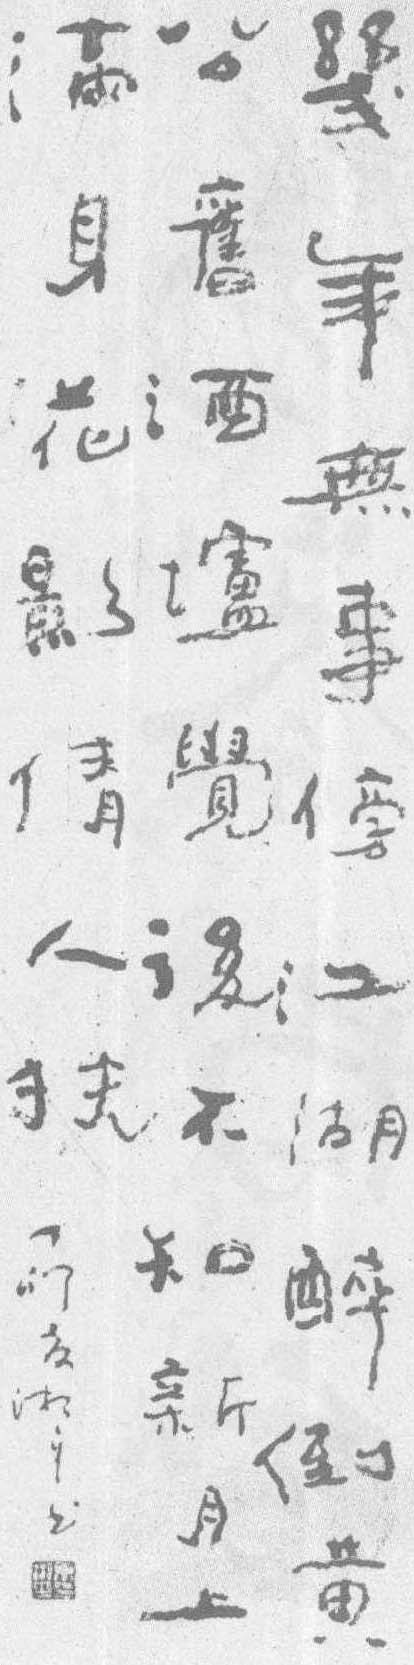 幾年無事傍江湖醉倒黃
公舊酒壚覺後不知新月上
滿身花影倩人扶